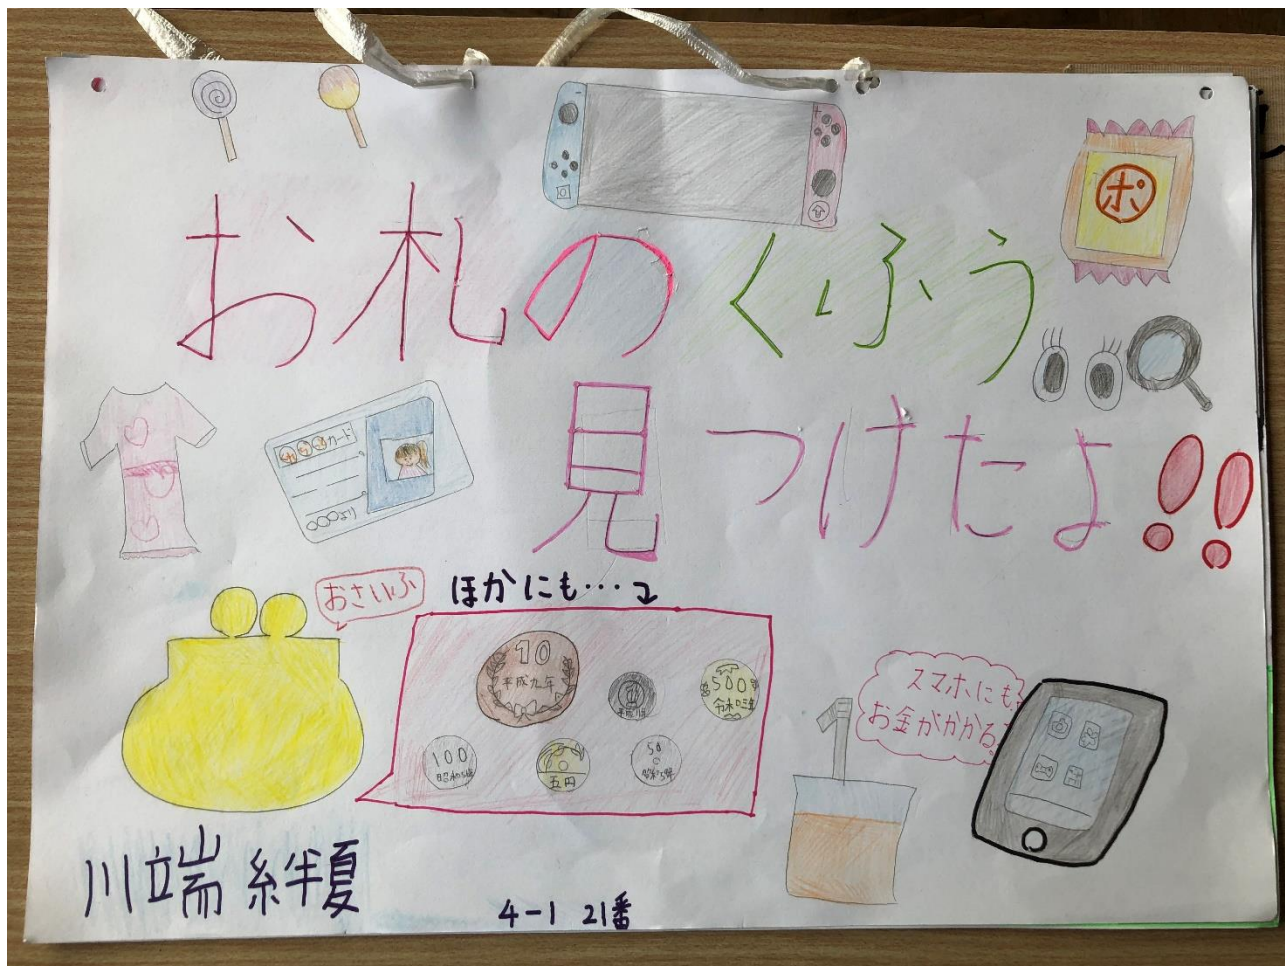 ポ
お札のくふう
見つけたよ!!
カード
〇〇〇より
おさいふ
ほかにも…
10
平成九年
500
100
五円
50
スマホにも
お金がかかる
川端 絆夏
4-1 21番